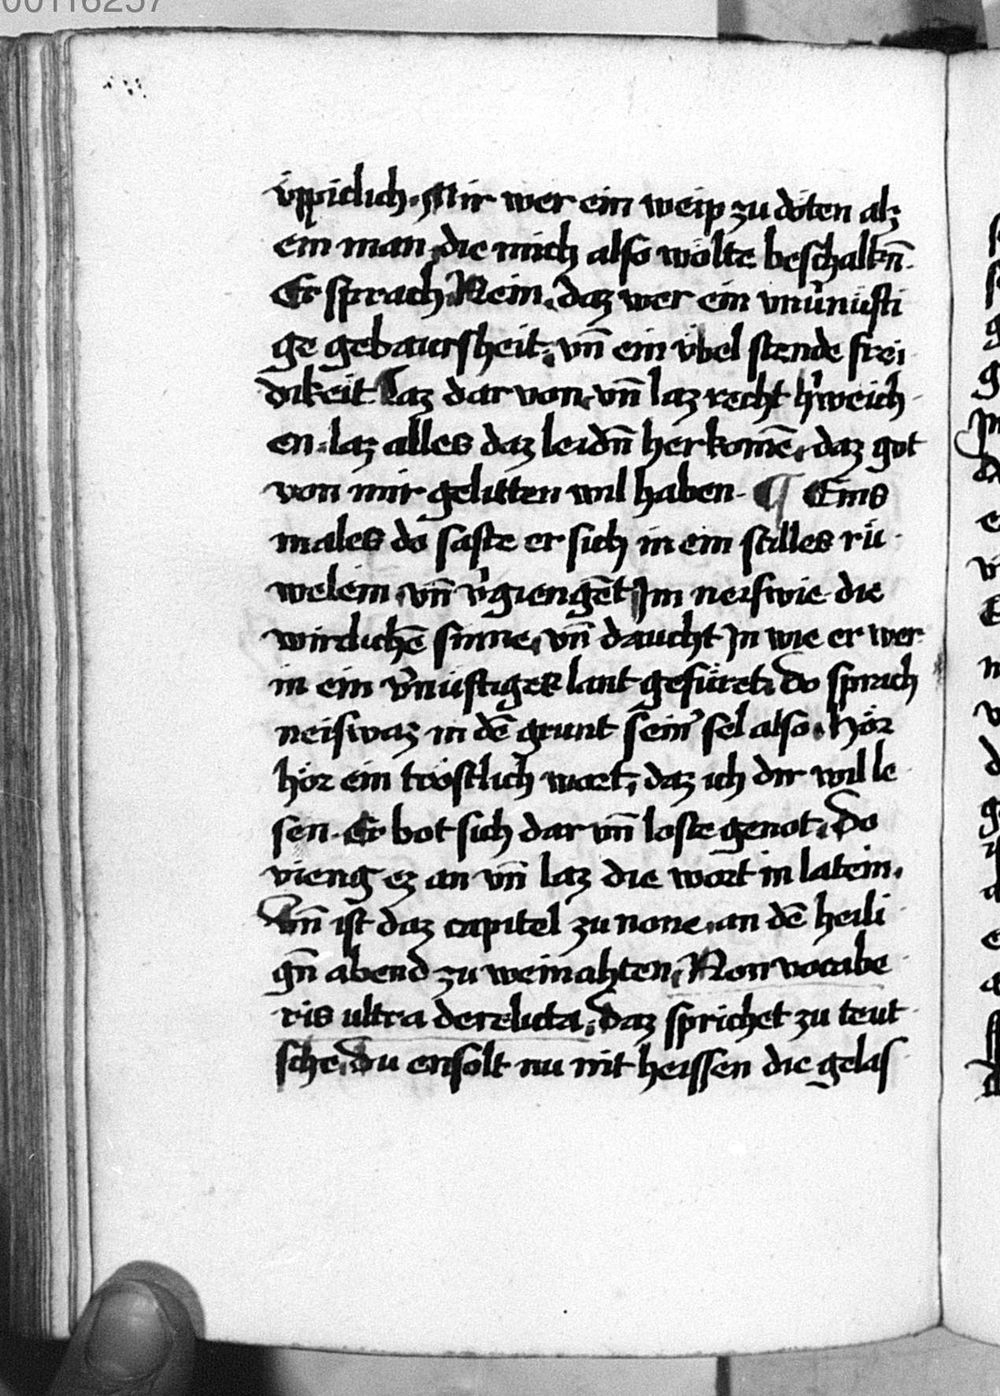 00116257
üppiclich. Mir wer ein weip zu döten alz
ein man, die mich also wölte beschalkn̄.
Er sprach, Nein, daz wer ein vnu̇nüfti
ge gebaursheit, vn̄ ein v̈bel stende frei
dikeit Laz dar von, vn̄ laz recht h'weich
en. laz alles daz leidn̄ her komē, daz got
von mir gelitten wil haben. ¶ Eins
males do saste er sich in ein stilles rü
welein, vn̄ v'giengēt Jm neiswie die
wirclichē sinne, vn̄ daucht Jn wie er wer
in ein v'nüftiges lant gefüret, do sprach
neiswaz in dē grunt sein' sel also, hör
hör ein tröstlich wort, daz ich dir wil le
sen. Er bot sich dar vn̄ loste genot, Do
vieng ez an vn̄ laz die wort in latein.
Vn̄ ist daz capitel zu none, an dē heili
gn̄ abend zu weinahten, Non vocabe
ris ultra derelicta, Daz sprichet zu teut
sche, Du ensolt nu nit heissen die gelas